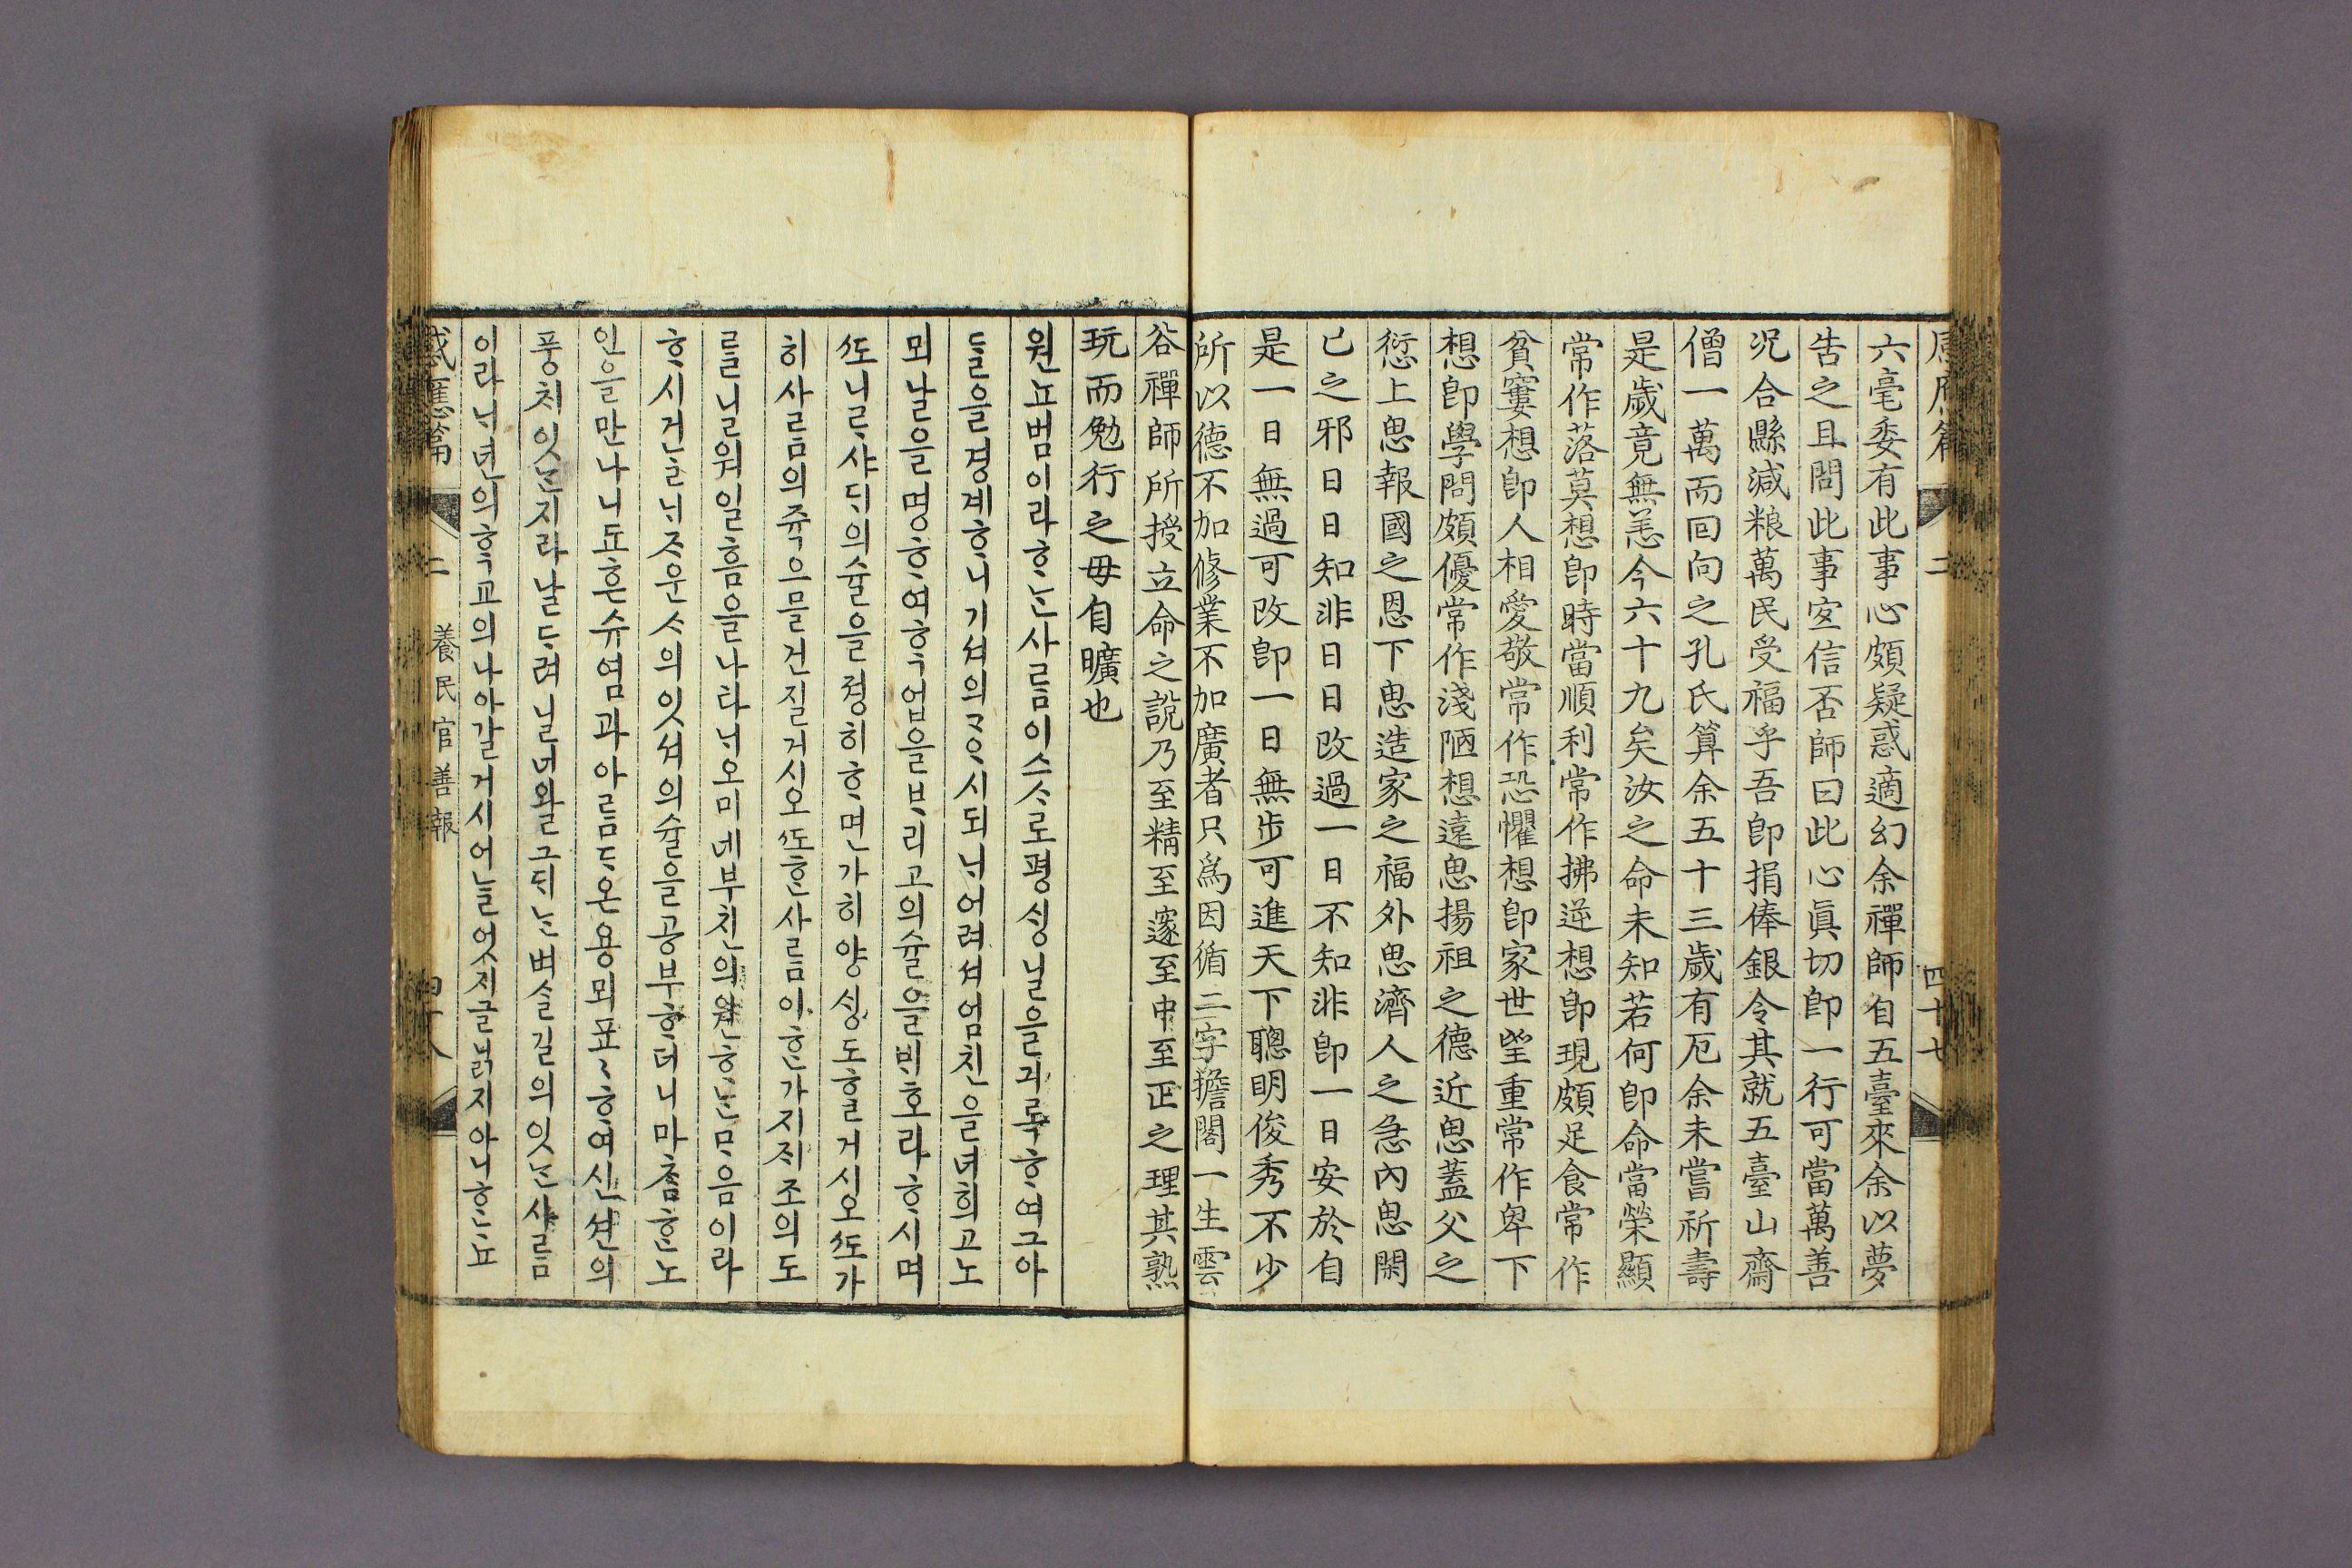 感應篇 二 四十七
六毫委有此事心頗疑惑適幻余禪師自五臺來余以夢
告之且問此事宜信否師曰此心眞切卽一行可當萬善
况合縣減粮萬民受福乎吾卽捐俸銀令其就五臺山齋
僧一萬而回向之孔氏算余五十三歲有厄余未嘗祈壽
是歲竟無恙今六十九矣汝之命未知若何卽命當榮顯
常作落莫想卽時當順利常作拂逆想卽現頗足食常作
貧窶想卽人相愛敬常作恐懼想卽家世望重常作卑下
想卽學問頗優常作淺陋想遠思揚祖之德近思蓋父之
愆上思報國之恩下思造家之福外思濟人之急內思閑
已之邪日日知非日日改過一日不知非卽一日安於自
是一日無過可改卽一日無步可進天下聰明俊秀不少
所以德不加修業不加廣者只爲因循二字擔閣一生雲
谷禪師所授立命之說乃至精至邃至中至正之理其熟
玩而勉行之毋自曠也
원뇨범이라ᄒᆞᄂᆞᆫ사ᄅᆞᆷ이스ᄉᆞ로평ᄉᆡᆼ닐을긔록ᄒᆞ여그아
ᄃᆞᆯ을경계ᄒᆞ니기셔의ᄀᆞᆯ오시되ᄂᆡ어려셔엄친을녀희고노
뫼날을명ᄒᆞ여ᄒᆞᆨ업을ᄇᆞ리고의슐을ᄇᆡ호라ᄒᆞ시며
ᄯᅩ니ᄅᆞ샤ᄃᆡ의슐을졍히ᄒᆞ면가히양ᄉᆡᆼ도ᄒᆞᆯ거시오ᄯᅩ가
히사ᄅᆞᆷ의쥭으믈건질거시오ᄯᅩᄒᆞᆫ사ᄅᆞᆷ이ᄒᆞᆫ가지ᄌᆡ조의도
ᄅᆞᆯ닐워일홈을나라ᄂᆡ오미네부친의원ᄒᆞᄂᆞᆫᄆᆞ음이라
ᄒᆞ시거ᄂᆞᆯᄂᆡᄌᆞ운ᄉᆞ의잇셔의슐을공부ᄒᆞ더니마ᄎᆞᆷᄒᆞᆫ노
인을만나니됴흔슈염과아ᄅᆞᆷᄃᆞ온용뫼표표ᄒᆞ여신션의
풍ᄎᆡ잇ᄂᆞᆫ지라날ᄃᆞ려닐너왈그ᄃᆡᄂᆞᆫ벼슬길의잇ᄂᆞᆫ사ᄅᆞᆷ
이라ᄂᆡ년의ᄒᆞᆨ교의나아갈거시어ᄂᆞᆯ엇지글닑지아니ᄒᆞᄂᆞ뇨
感應篇 二 養民官善報 四十八